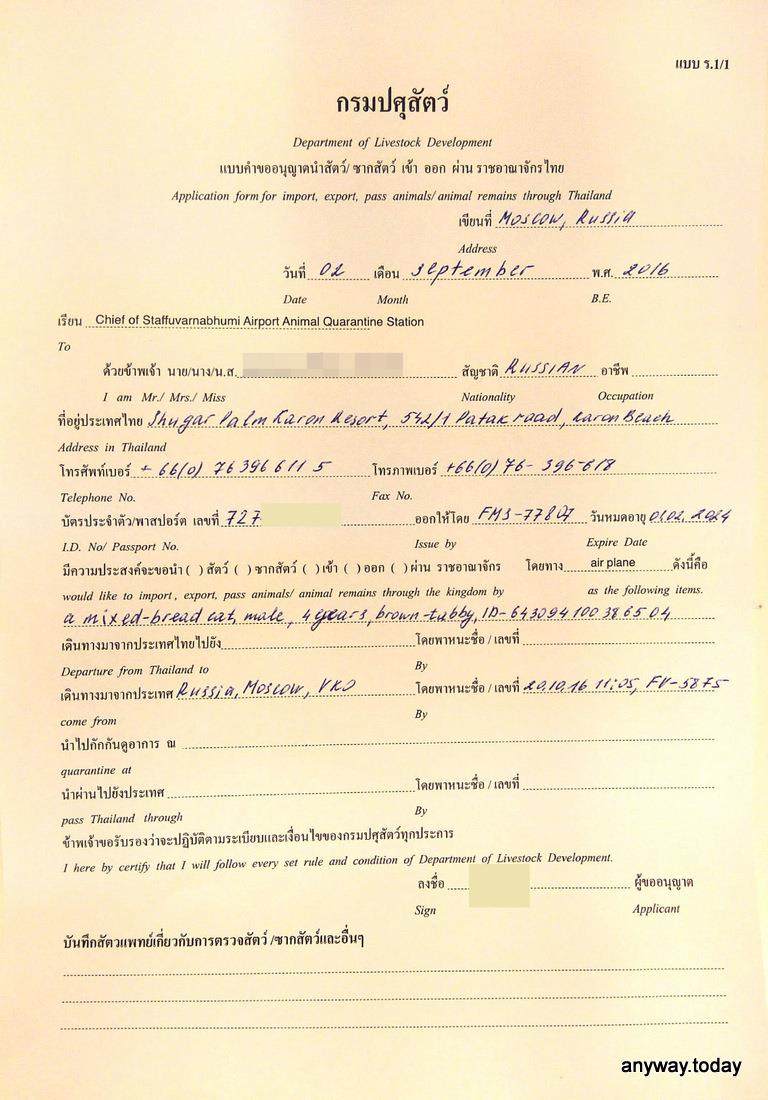 แบบ ร.1/1
กรมปศุสัตว์
Department of Livestock Development
แบบคำขออนุญาตนำสัตว์/ ซากสัตว์ เข้า ออก ผ่าน ราชอาณาจักรไทย
Application form for import, export, pass animals/ animal remains through Thailand
เขียนที่ Moscow, Russia
Address
วันที่ 02 เดือน September พ.ศ. 2016
Date Month B.E.
เรียน Chief of Staffuvarnabhumi Airport Animal Quarantine Station
To
ด้วยข้าพเจ้า นาย/นาง/น.ส. สัญชาติ RUSSIAN อาชีพ
I am Mr./ Mrs./ Miss Nationality Occupation
ที่อยู่ประเทศไทย Shugar Palm Karon Resort, 542/1 Patak road, Karon Beach
Address in Thailand
โทรศัพท์เบอร์ + 66(0) 76 396 611 5 โทรภาพเบอร์ +66(0) 76- 396-618
Telephone No. Fax No.
บัตรประจำตัว/พาสปอร์ต เลขที่ 727 ออกให้โดย FMS-77807 วันหมดอายุ 01.02.2024
I.D. No/ Passport No. Issue by Expire Date
มีความประสงค์จะขอนำ ( ) สัตว์ ( ) ซากสัตว์ ( ) เข้า ( ) ออก ( ) ผ่าน ราชอาณาจักร โดยทาง air plane ดังนี้คือ
would like to import , export, pass animals/ animal remains through the kingdom by as the following items.
a mixed-bread cat, male, 4 years, brown-tabby, ID-643094100386504
เดินทางมาจากประเทศไทยไปยัง โดยพาหนะชื่อ / เลขที่
Departure from Thailand to By
เดินทางมาจากประเทศ Russia, Moscow, VKO โดยพาหนะชื่อ / เลขที่ 20.10.16 11:05, FV-5875
come from By
นำไปกักกันดูอาการ ณ
quarantine at
นำผ่านไปยังประเทศ โดยพาหนะชื่อ / เลขที่
pass Thailand through By
ข้าพเจ้าขอรับรองว่าจะปฏิบัติตามระเบียบและเงื่อนไขของกรมปศุสัตว์ทุกประการ
I here by certify that I will follow every set rule and condition of Department of Livestock Development.
ลงชื่อ ผู้ขออนุญาต
Sign Applicant
บันทึกสัตวแพทย์เกี่ยวกับการตรวจสัตว์ /ซากสัตว์และอื่นๆ
anyway.today